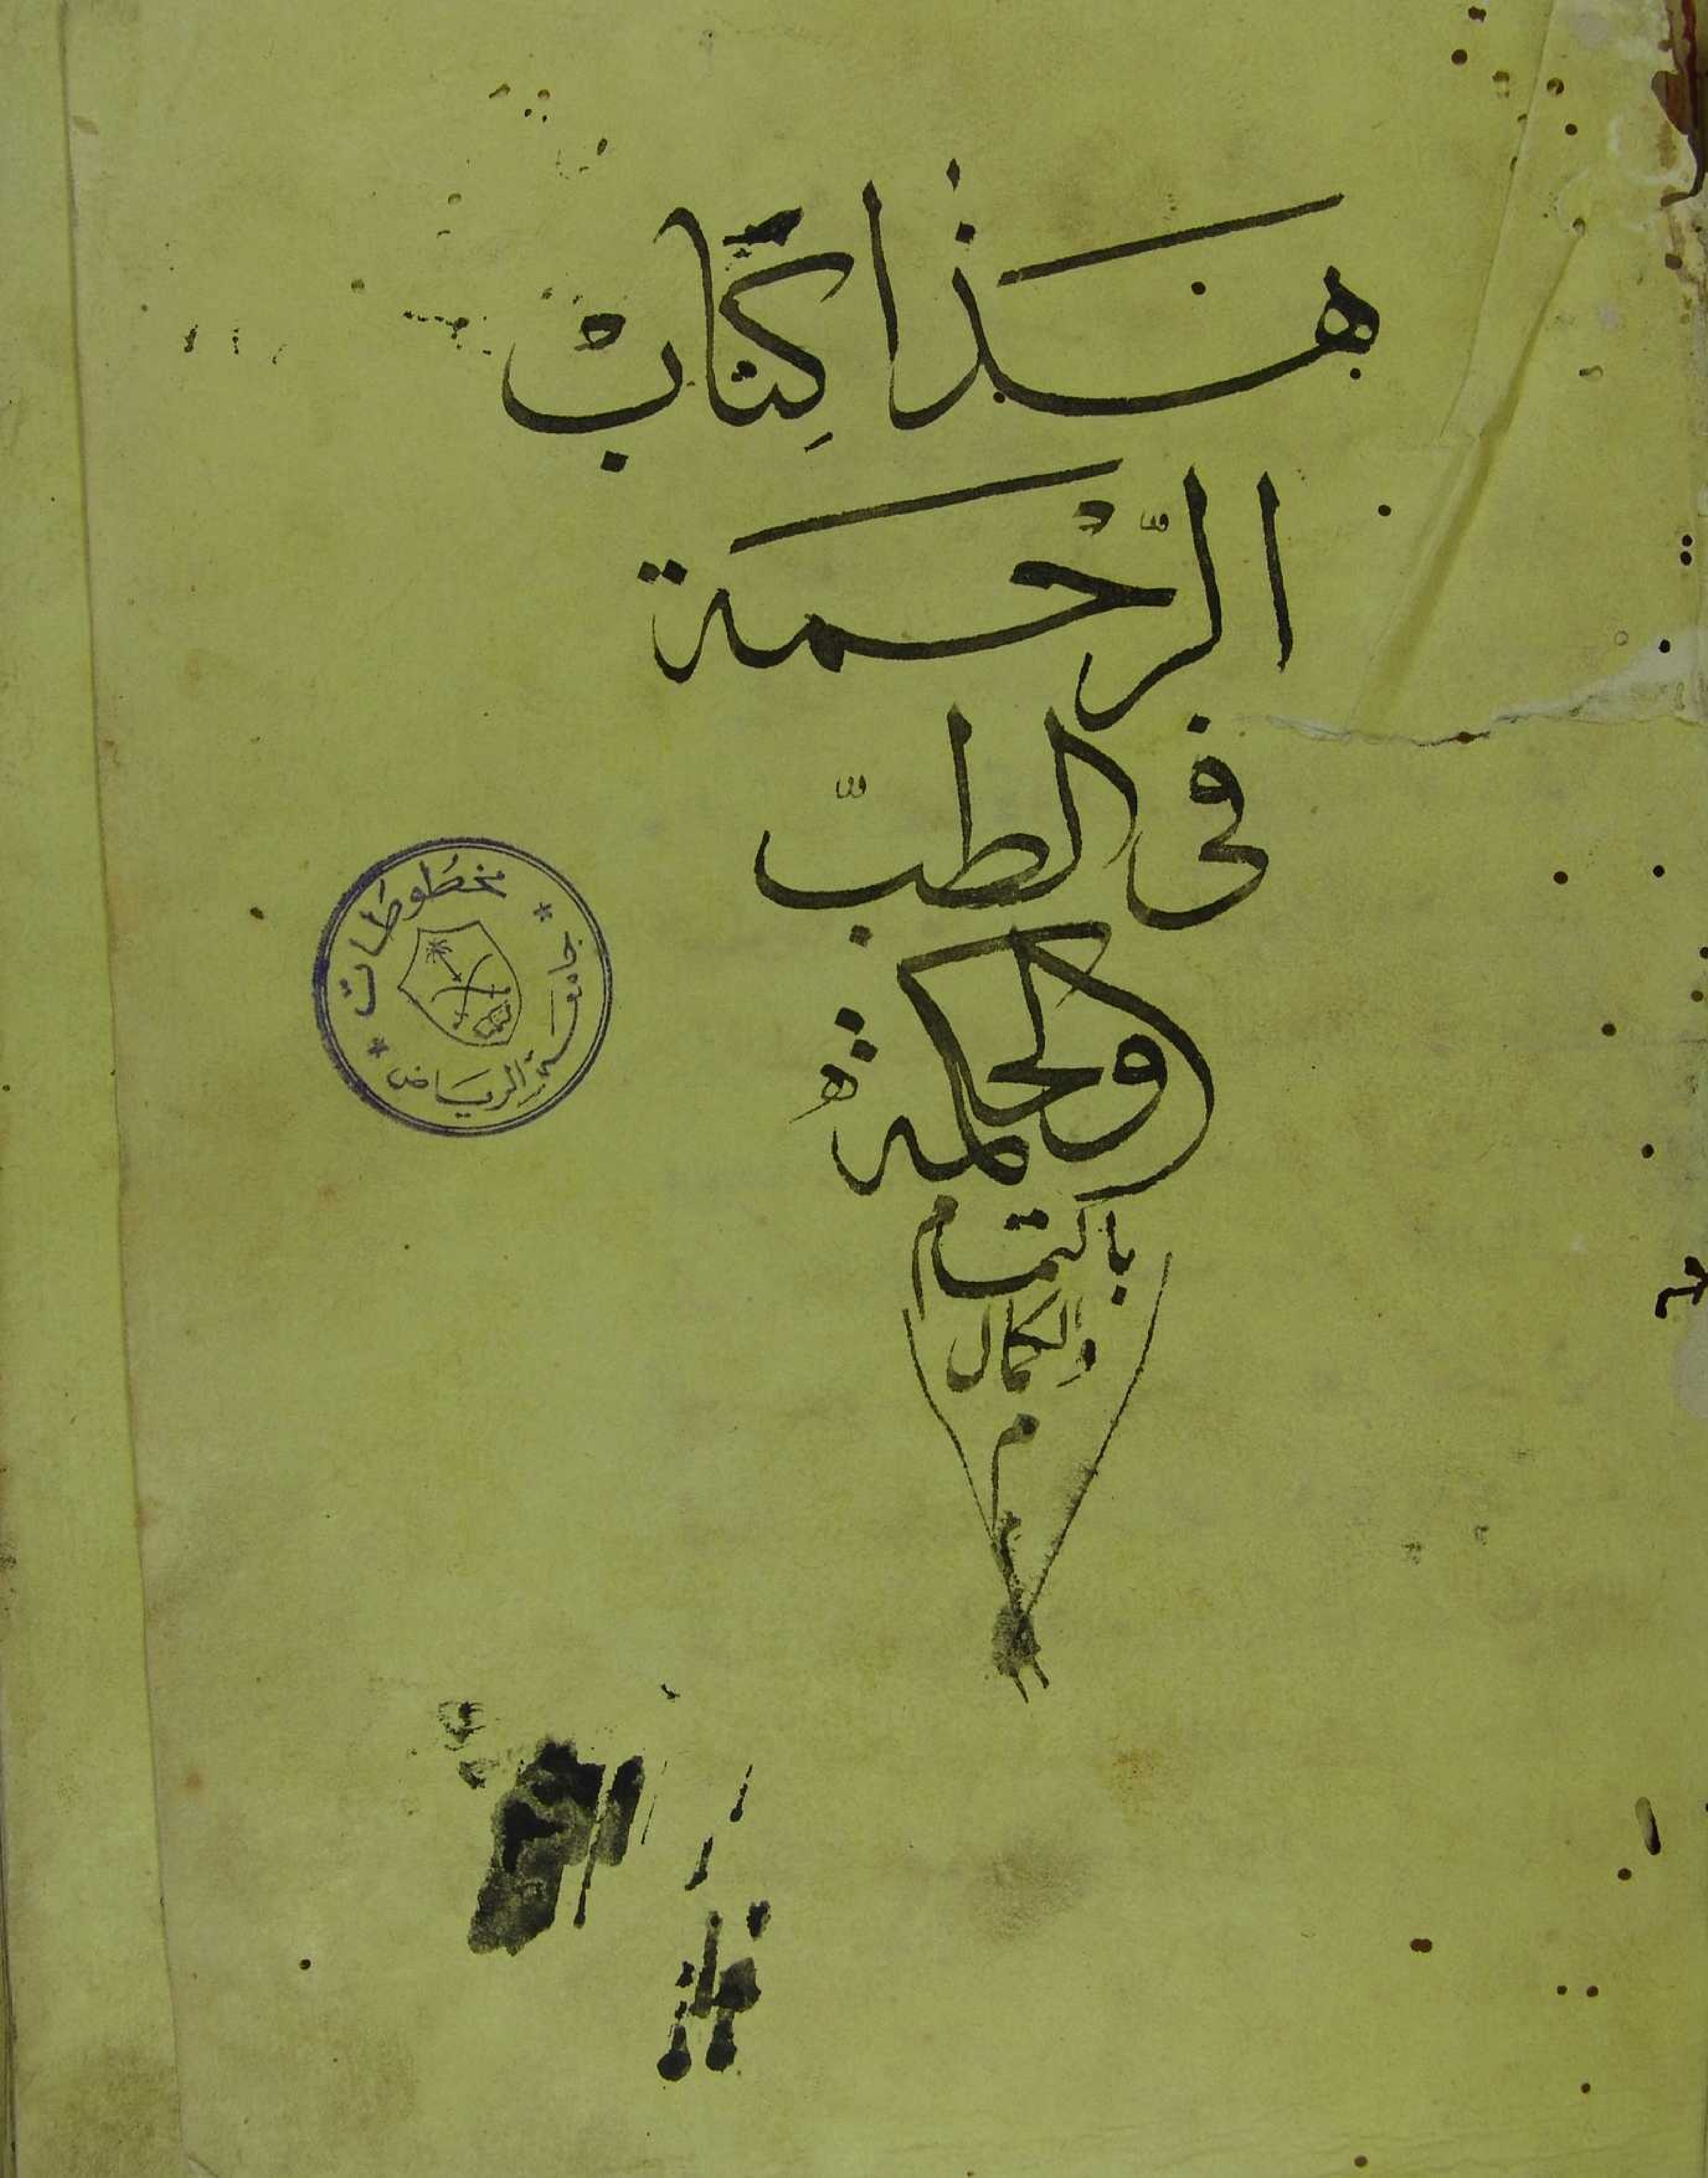 هَذَا كِتَابْ
الرَّحْمَة
فى الطبّ
والحكمة
بالتمام
والكمال
م
مخطوطات
جامعة الرياض